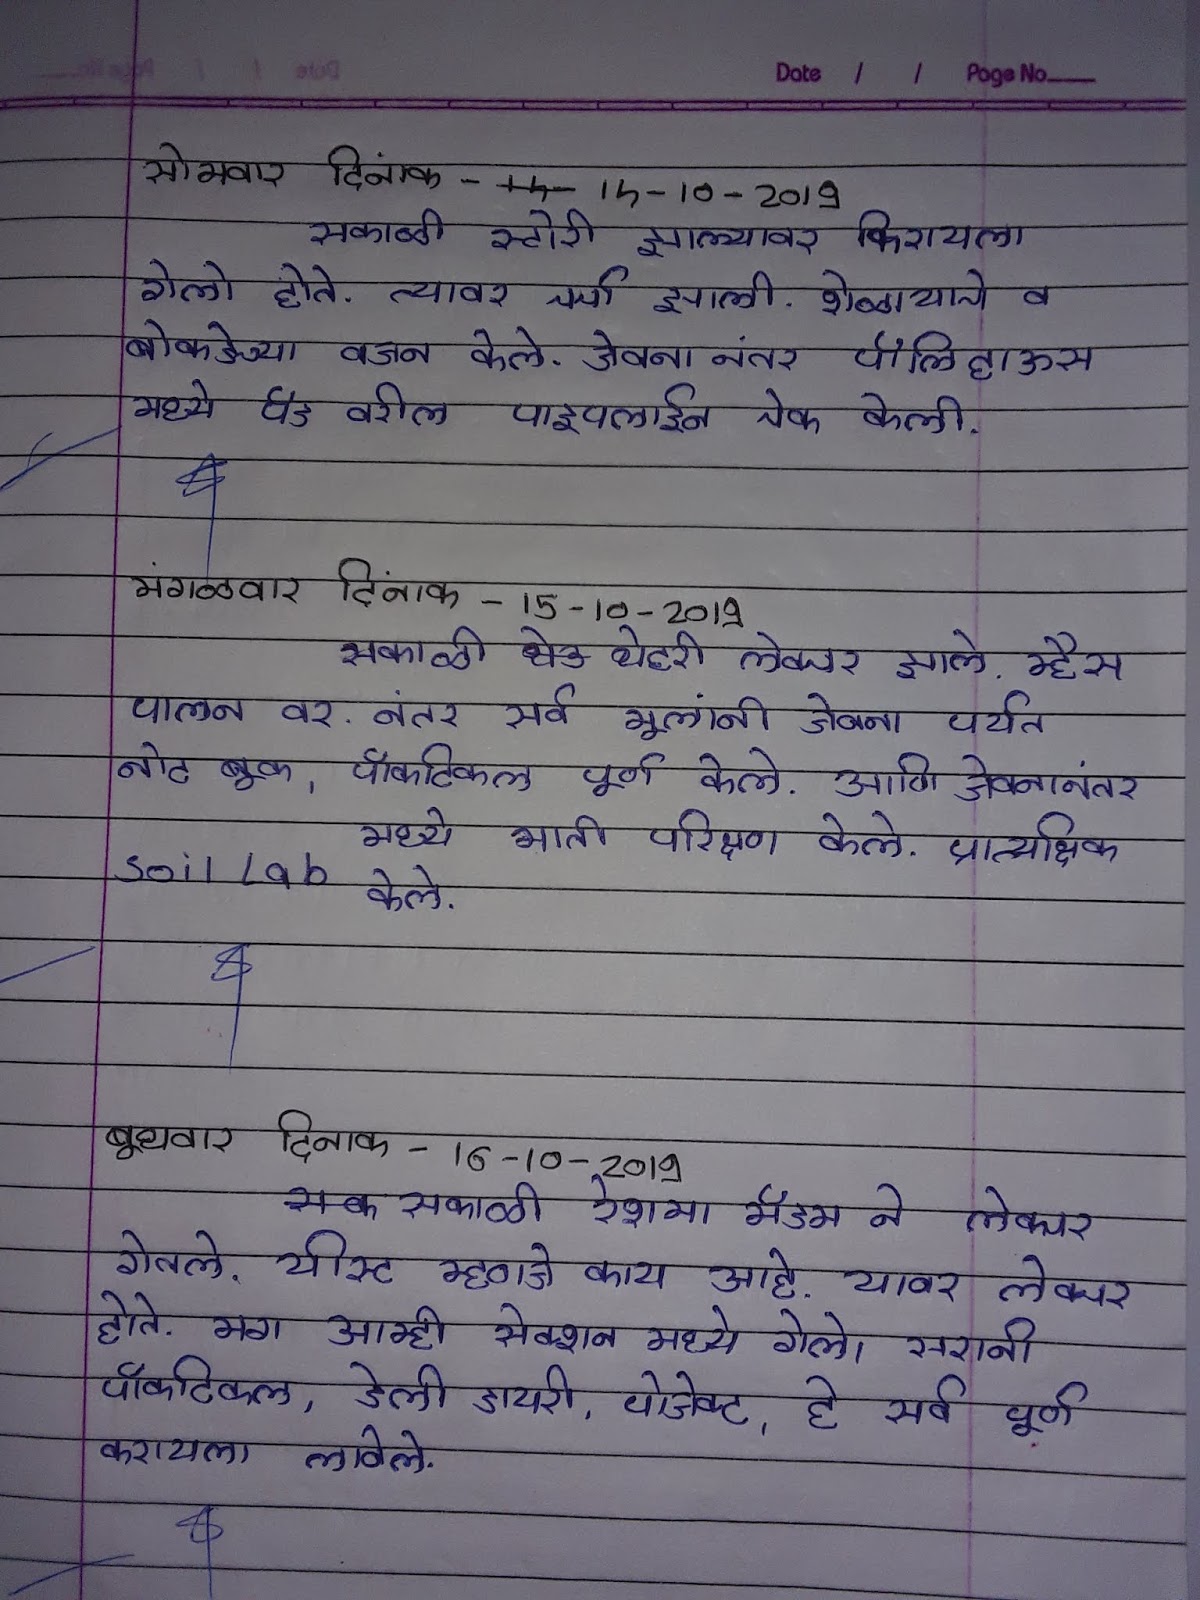 Date / / Page No.
सोमवार दिनांक - 14-10-2019
सकाळी स्टोरी झाल्यावर फिरायला
गेलो होते. त्यावर चर्चा झाली. शेळ्यांचे व
बोकडेच्या वजन केले. जेवना नंतर पॉलिहाऊस
मध्ये बॅड वरील पाइपलाईन चेक केली.
मंगळवार दिंनाक - 15-10-2019
सकाळी थेअ थेटरी लेक्चर झाले. म्हैस
पालन वर. नंतर सर्व मूलांनी जेवना पर्यंत
नोट बुक, पॅक्टिकल पूर्ण केले. आणि जेवनानंतर
soil Lab मध्ये माती परिक्षण केले. प्रात्यक्षिक
केले.
बूधवार दिनाक - 16-10-2019
सकाळी रेशमा मॅडम ने लेक्चर
घेतले. यीस्ट म्हणजे काय आहे. यावर लेक्चर
होते. मग आम्ही सेक्शन मध्ये गेलो। सरानी
पॅक्टिकल, डेली डायरी, पोजेक्ट, हे सर्व पूर्ण
करायला लावेले.